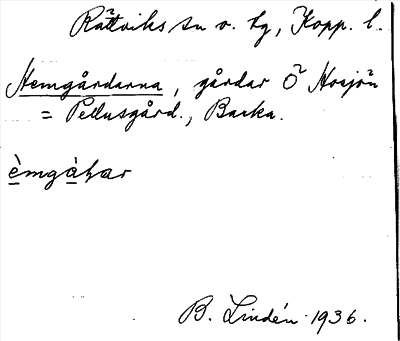 Rättviks sn o. hg, Kopp. l.
Hemgårdarna, gårdar Ö Nosjön
= Pellusgård., Backa.
èmgàhar
B. Lindén 1936.